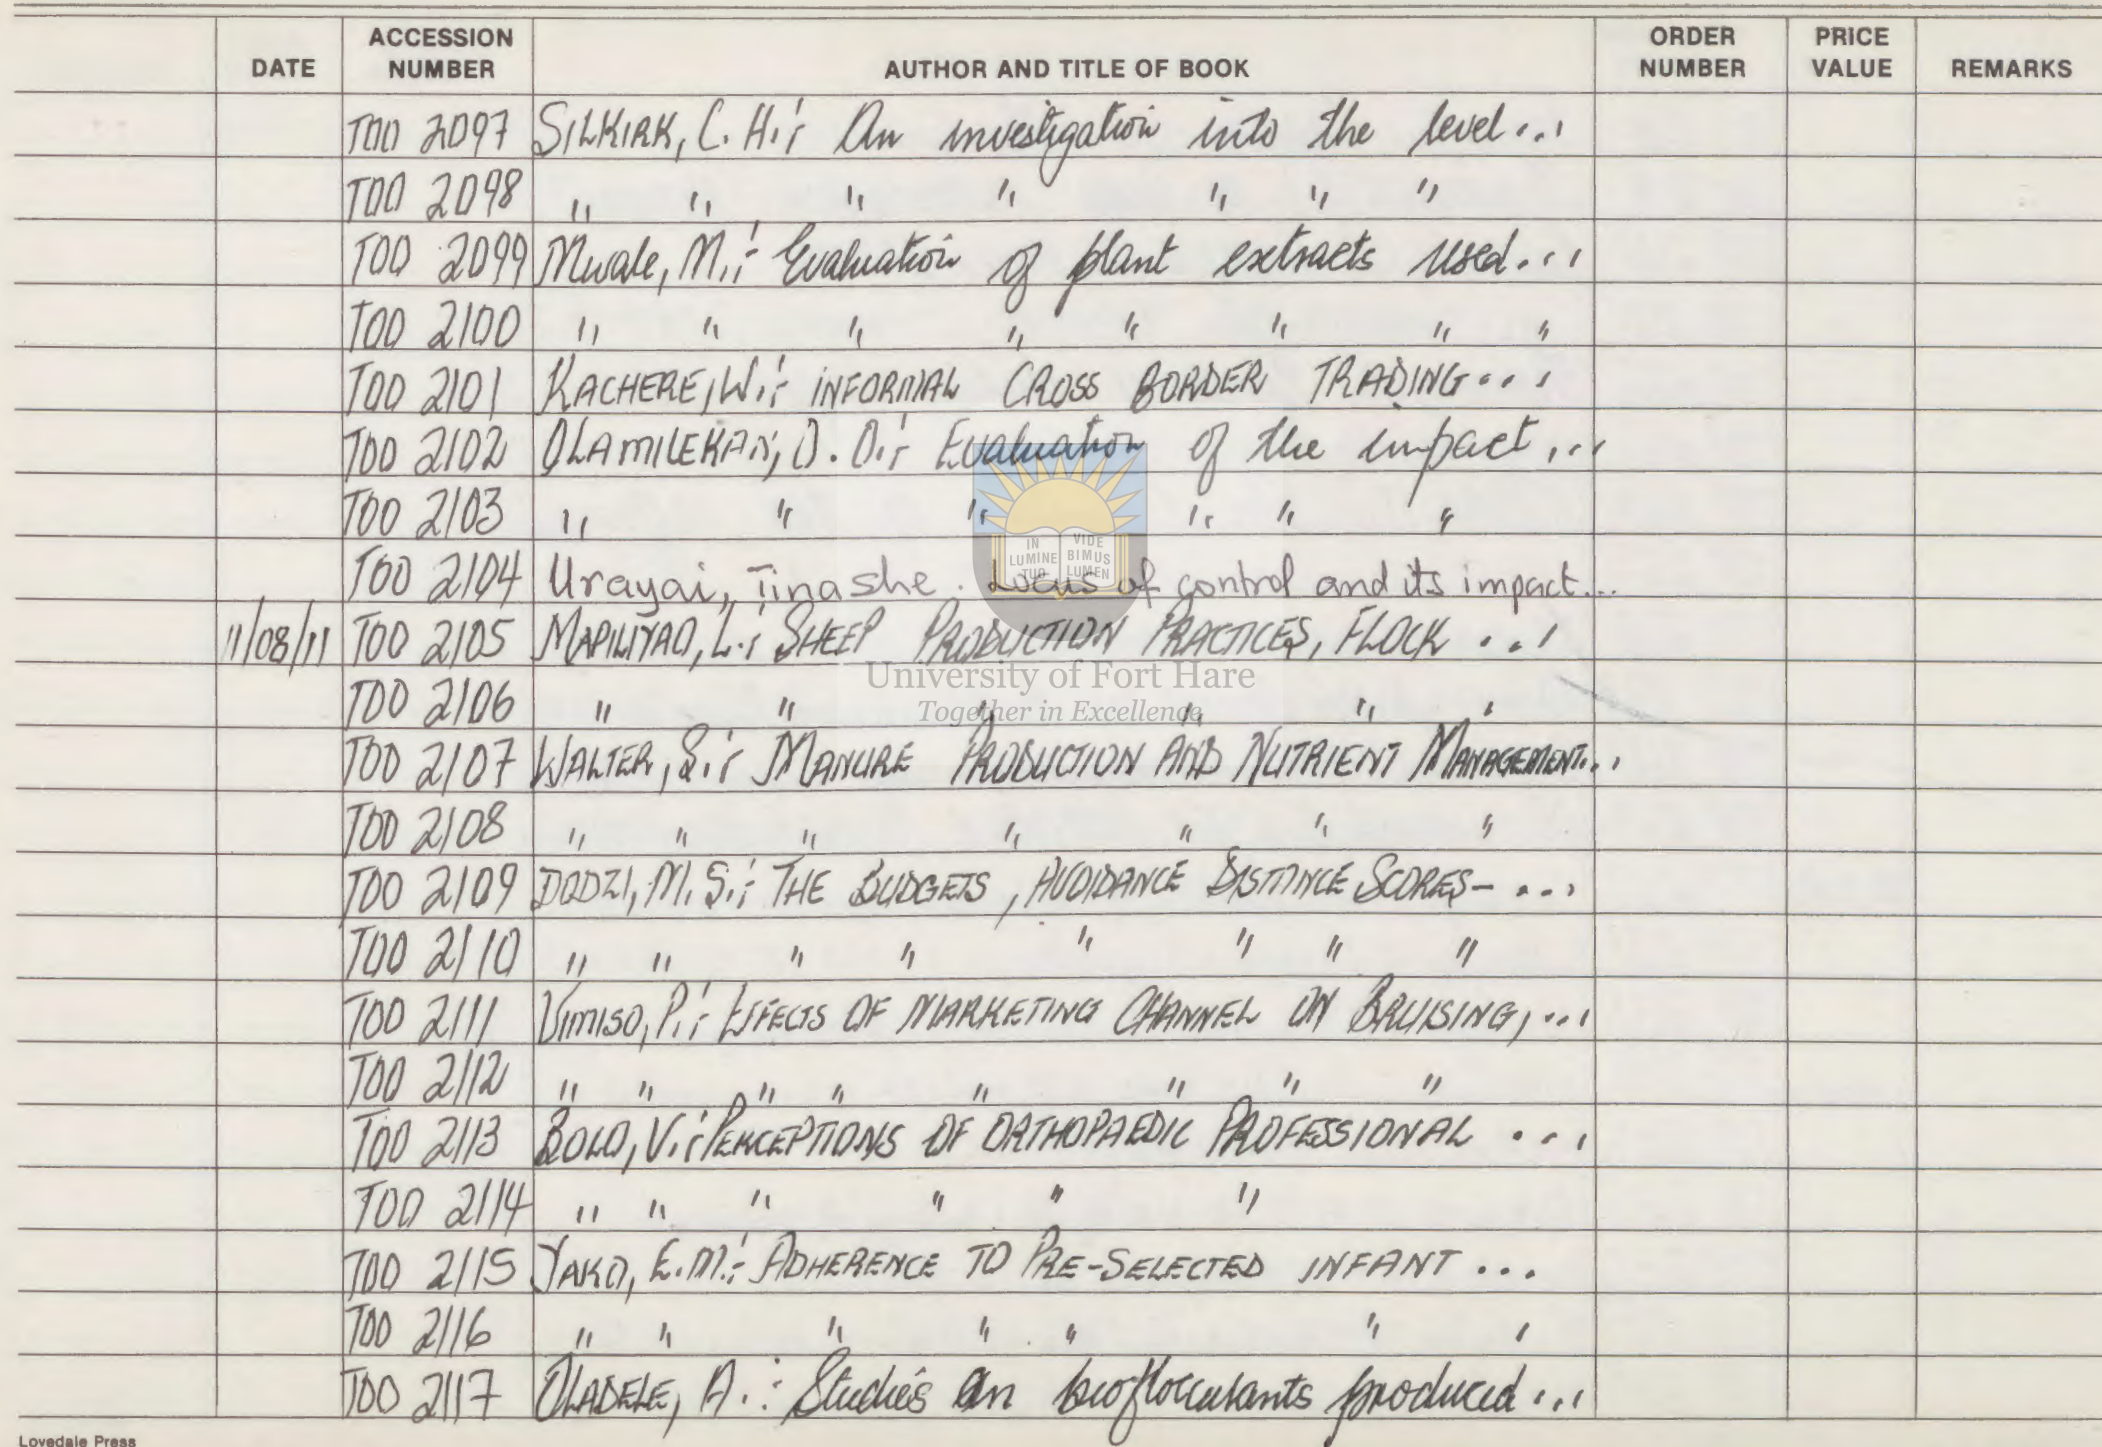 DATE ACCESSION NUMBER AUTHOR AND TITLE OF BOOK ORDER NUMBER PRICE VALUE REMARKS
T00 2097 SILKIRK, C. H.:- An investigation into the level...
T00 2098 " " " " " " "
T00 2099 Mwale, M.:- Evaluation of plant extracts used...
T00 2100 " " " " " " " "
T00 2101 KACHERE, W.:- INFORMAL CROSS BORDER TRADING...
T00 2102 OLAMILEKAN, O. O.:- Evaluation of the impact...
T00 2103 " " " " " "
T00 2104 Urayai, Tinashe. Locus of control and its impact...
11/08/11 T00 2105 MAPILIYAO, L.: SHEEP PRODUCTION PRACTICES, FLOCK ...
T00 2106 " " " " " "
T00 2107 WALTER, S.:- MANURE PRODUCTION AND NUTRIENT MANAGEMENT...
T00 2108 " " " " " " "
T00 2109 DODZI, M. S.:- THE BUDGETS, AVOIDANCE DISTANCE SCORES- ...
T00 2110 " " " " " " " "
T00 2111 VIMISO, P.:- EFFECTS OF MARKETING CHANNEL ON BRUISING, ...
T00 2112 " " " " " " " "
T00 2113 BOLO, V.:- PERCEPTIONS OF ORTHOPAEDIC PROFESSIONAL ...
T00 2114 " " " " " "
T00 2115 YAKO, E.M.:- ADHERENCE TO PRE-SELECTED INFANT ...
T00 2116 " " " " " " "
T00 2117 OLADELE, A.: Studies on bioflocculants produced...
IN LUMINE TUO VIDE BIMUS LUMEN
University of Fort Hare
Together in Excellence
Lovedale Press